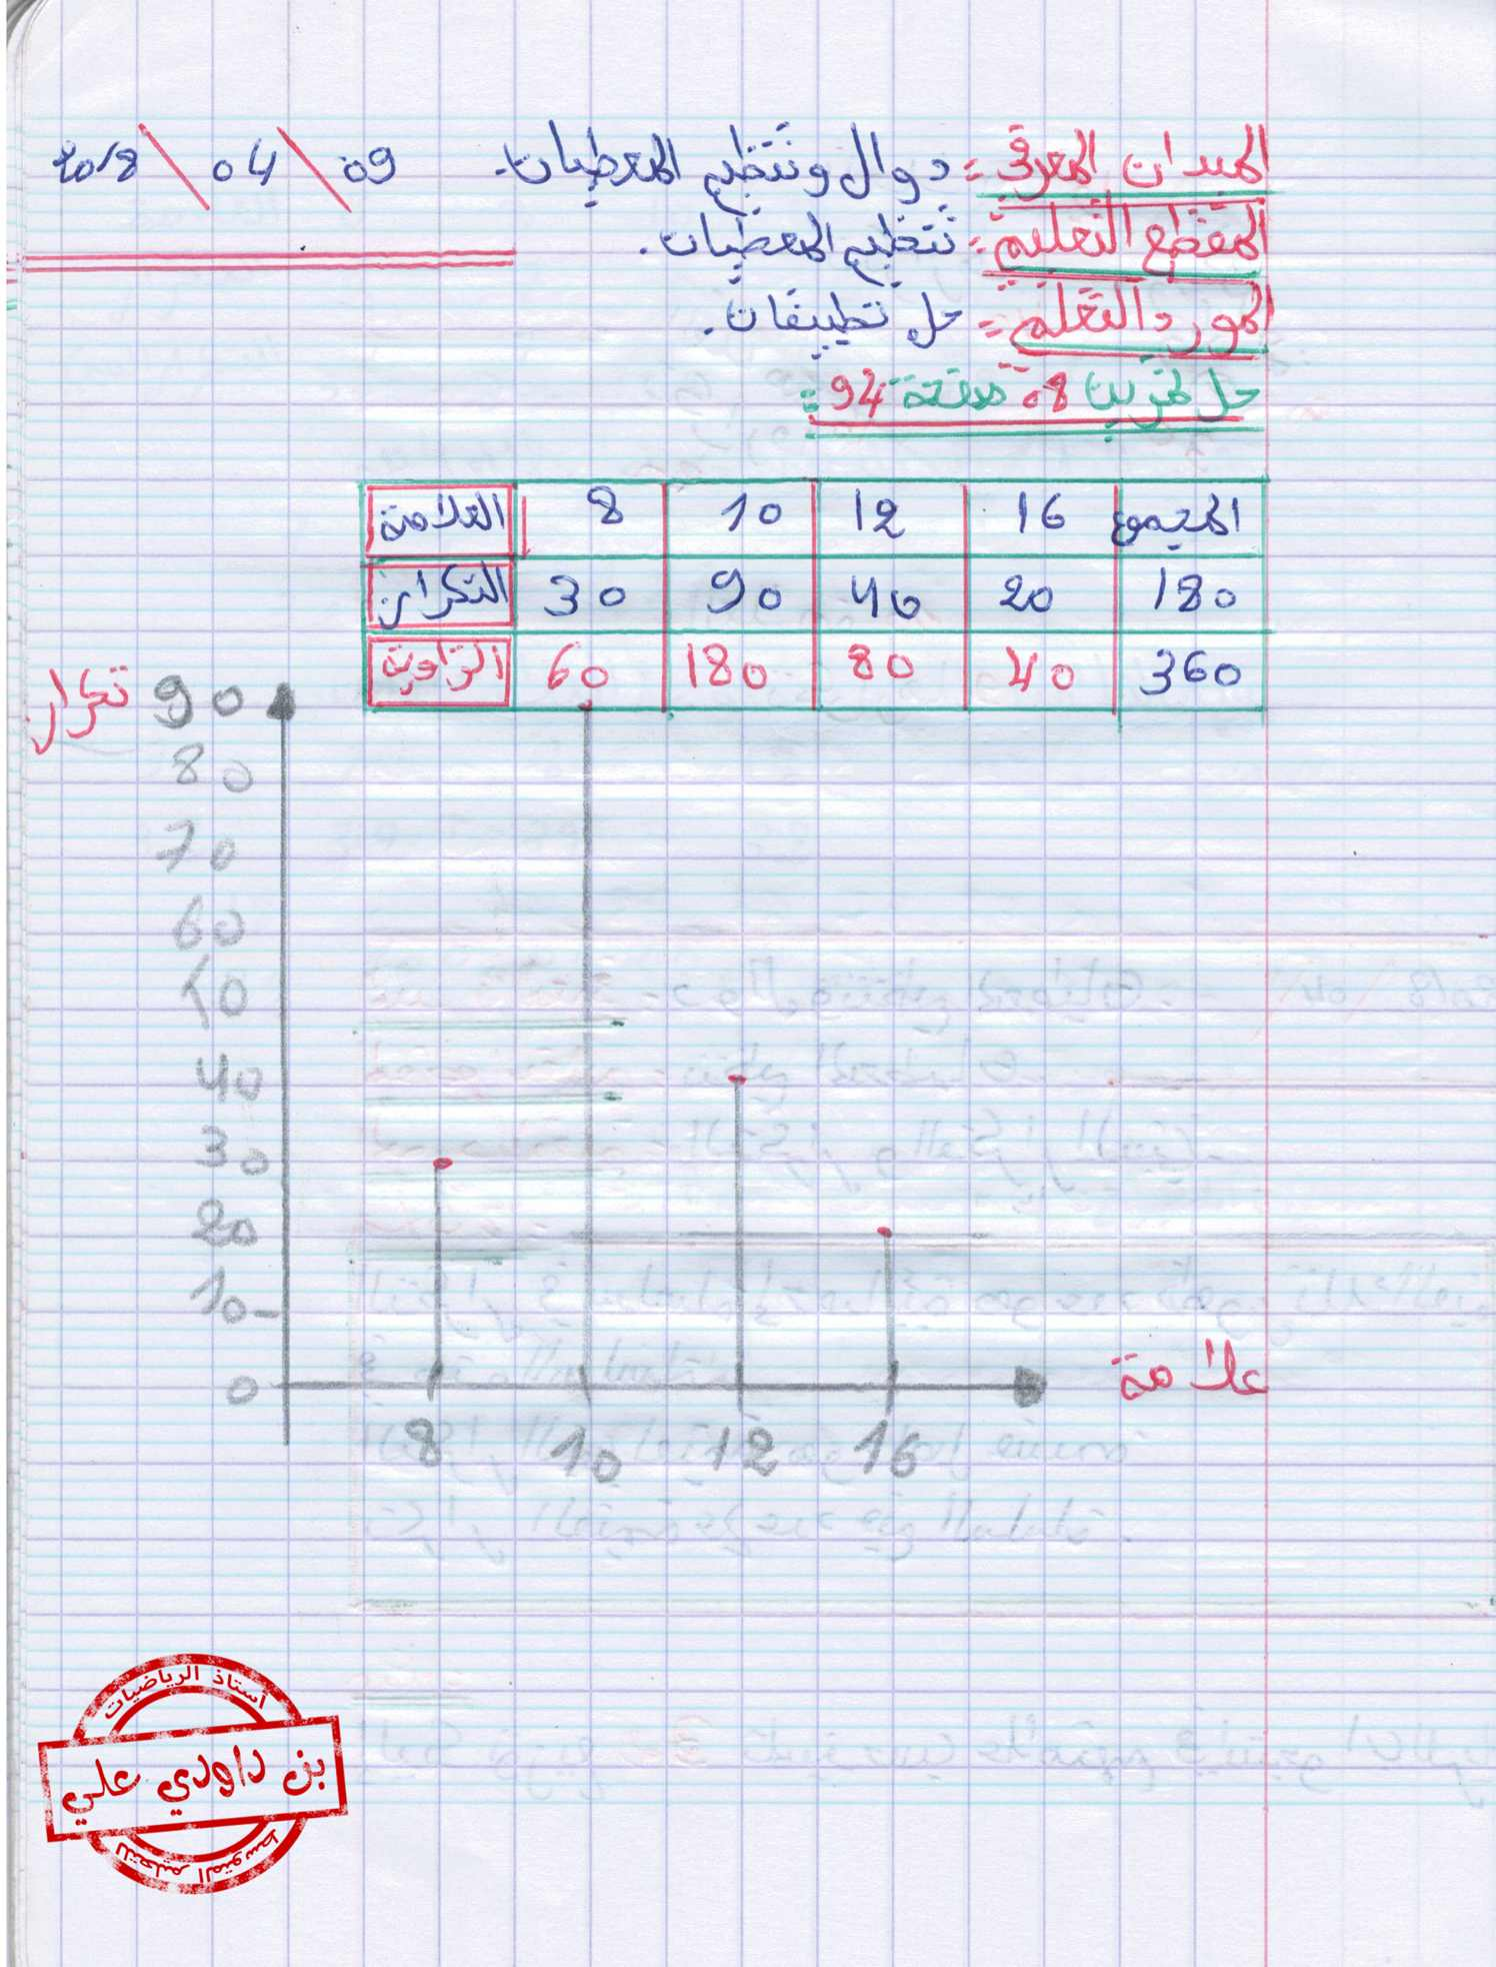 الميدان المعرفي: دوال وتنظيم المعطيات. 09 / 04 / 2018
المقطع التعليمي: تنظيم المعطيات.
المورد التعلمي: حل تطبيقات.
حل تمرين 08 صفحة 94:
العلامة 8 10 12 16 المجموع
التكرار 30 90 40 20 180
الزاوية 60 180 80 40 360
تكرار 90
80
70
60
50
40
30
20
10
0
علامة
8 10 12 16
أستاذ الرياضيات
بن داودي علي
للتعليم المتوسط